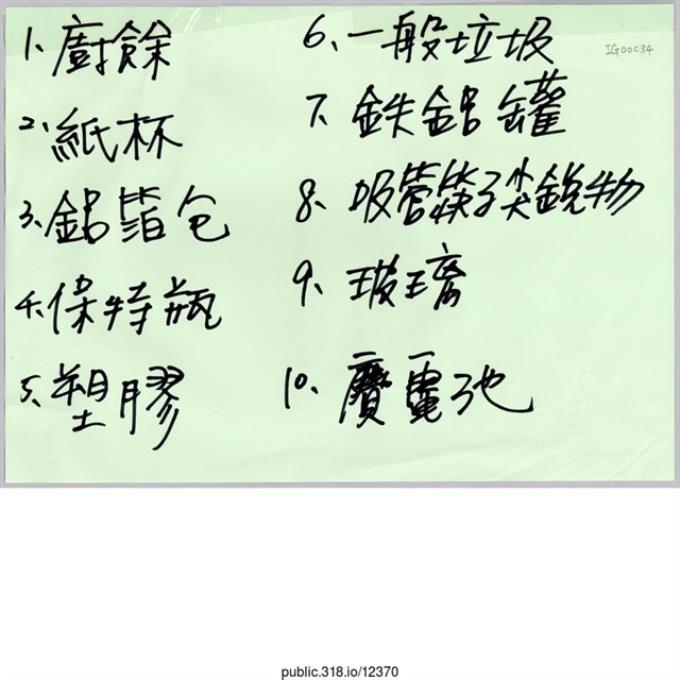 1、廚餘
2、紙杯
3、鋁箔包
4、保特瓶
5、塑膠
6、一般垃圾
7、鉄鋁罐
8、吸管筷子尖銳物
9、玻璃
10、廢電池
IG00034
public.318.io/12370